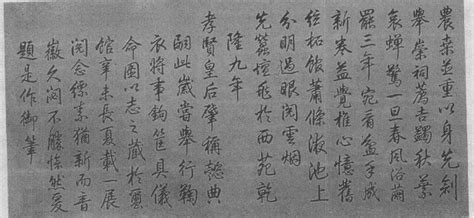 農桑並重以身先剏
舉崇祠薦吉蠲秋葉
哀蟬驚一旦春風浴繭
罷三年宛看盆手成
新卷益覺椎心憶舊
絃柘館蕭條液池上
分明過眼閱雲烟
先蠶壇於西苑乾
隆九年
孝賢皇后肇稱懿典
嗣此歲當舉行鞠
衣將事鉤筐具儀
命圖以志之藏於蠶
館辛未長夏載一展
閱念縹素猶新而音
徽久閟不勝愴然爰
題是作御筆